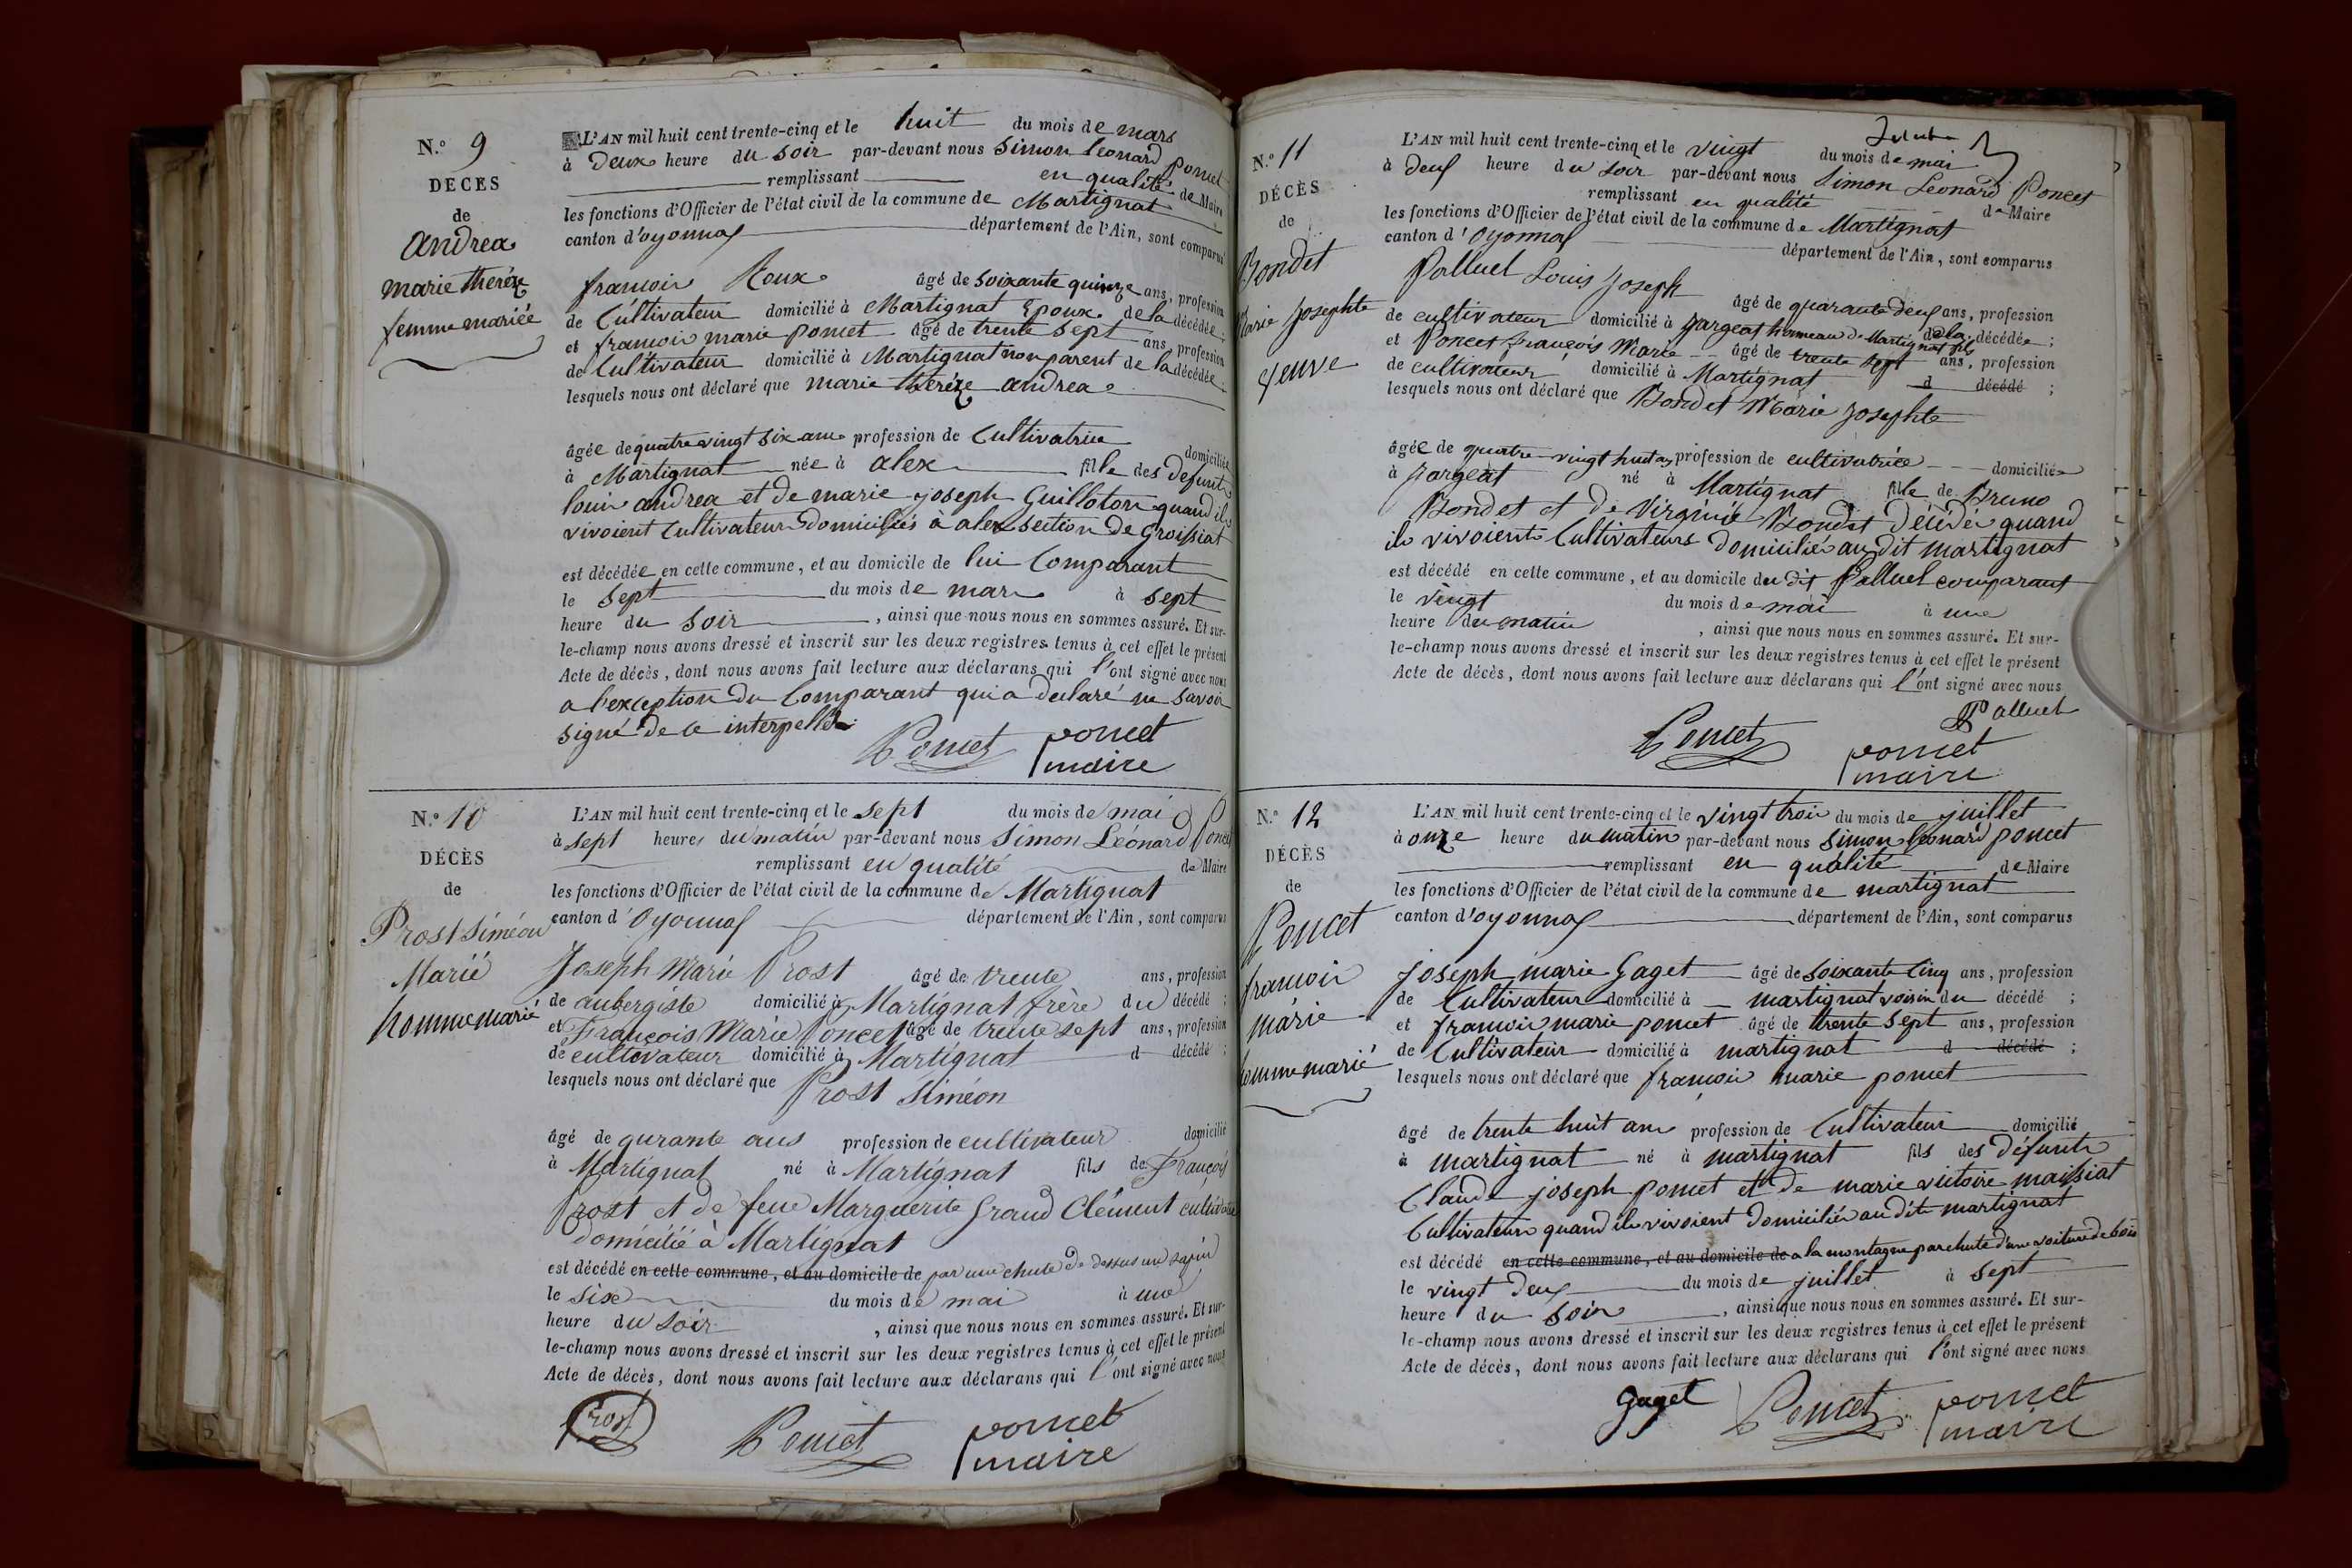 N.o 9
DÉCÈS
de
andrea
marie theréze
femme mariée
L'AN mil huit cent trente-cinq et le huit du mois de mars
à deux heure du soir par-devant nous simon leonard poncet
remplissant en qualité de Maire
les fonctions d'Officier de l'état civil de la commune de Martignat
canton d'oyonnax département de l'Ain, sont comparus
francois Roux âgé de soixante quinze ans, profession
de Cultivateur domicilié à Martignat Epoux de la décédée;
et francois marie poncet âgé de trente sept ans, profession
de Cultivateur domicilié à Martignat non parent de la décédée;
lesquels nous ont déclaré que marie theréze andrea
âgée de quatre vingt six ans profession de Cultivatrice domiciliée
à Martignat née à alex fille des defunts
louis andrea et de marie joseph Guilloton quand ils
vivoient Cultivateurs domiciliés à alex section de Groissiat
est décédée en cette commune, et au domicile de lui Comparant
le sept du mois de mars à sept
heure du soir, ainsi que nous nous en sommes assuré. Et sur-
le-champ nous avons dressé et inscrit sur les deux registres tenus à cet effet le présent
Acte de décès, dont nous avons fait lecture aux déclarans qui l'ont signé avec nous
a l'exception du Comparant qui a declaré ne savoir
signé de ce interpellé
Poncet poncet
maire
N.o 10
DÉCÈS
de
Prost Siméon
Marié
homme marié
L'AN mil huit cent trente-cinq et le sept du mois de mai
à sept heures du matin par-devant nous Simon Léonard Poncet
remplissant en qualité de Maire
les fonctions d'Officier de l'état civil de la commune de Martignat
canton d'Oyonnax département de l'Ain, sont comparus
Joseph Marie Prost âgé de trente ans, profession
de aubergiste domicilié à Martignat frère du décédé;
et François Marie Poncet âgé de trente sept ans, profession
de cultivateur domicilié à Martignat d décédé;
lesquels nous ont déclaré que Prost Siméon
âgé de qurante ans profession de cultivateur domicilié
à Martignat né à Martignat fils de François
Prost et de feue Marguerite Grand Clément
domicilié à Martignat
est décédé en cette commune, et au domicile de par une chute de dessus un sapin
le six du mois de mai à une
heure du soir, ainsi que nous nous en sommes assuré. Et sur-
le-champ nous avons dressé et inscrit sur les deux registres tenus à cet effet le présent
Acte de décès, dont nous avons fait lecture aux déclarans qui l'ont signé avec nous
Prost Poncet poncet
maire
N.o 11
DÉCÈS
de
Bondet
Marie Josephte
veuve
L'AN mil huit cent trente-cinq et le vingt du mois de mai
à deux heure du soir par-devant nous Simon Leonard Poncet
remplissant en qualité de Maire
les fonctions d'Officier de l'état civil de la commune de Martignat
canton d'Oyonnax département de l'Ain, sont comparus
Palluel Louis Joseph âgé de quarante deux ans, profession
de cultivateur domicilié à jargeat hammeau de Martignat fils de la décédée;
et Poncet françois Marie âgé de trente sept ans, profession
de cultivateur domicilié à Martignat d décédé;
lesquels nous ont déclaré que Bondet Marie josephte
âgée de quatre vingt huit ans profession de cultivatrice domiciliée
à jargeat né à Martignat fille de Bruno
Bondet et de Virginie Bondet décédés quand
ils vivoient Cultivateurs domiciliés au dit martignat
est décédé en cette commune, et au domicile du dit Palluel comparant
le vingt du mois de mai à une
heure du matin, ainsi que nous nous en sommes assuré. Et sur-
le-champ nous avons dressé et inscrit sur les deux registres tenus à cet effet le présent
Acte de décès, dont nous avons fait lecture aux déclarans qui l'ont signé avec nous
Palluel
Poncet poncet
maire
N.o 12
DÉCÈS
de
Poncet
francois
marie
homme marié
L'AN mil huit cent trente-cinq et le vingt trois du mois de juillet
à onze heure du matin par-devant nous simon leonard poncet
remplissant en qualité de Maire
les fonctions d'Officier de l'état civil de la commune de martignat
canton d'oyonnax département de l'Ain, sont comparus
joseph marie Gaget âgé de soixante Cinq ans, profession
de Cultivateur domicilié à martignat voisin du décédé;
et francois marie poncet âgé de trente sept ans, profession
de Cultivateur domicilié à martignat d décédé;
lesquels nous ont déclaré que francois marie poncet
âgé de trente huit ans profession de Cultivateur domicilié
à martignat né à martignat fils des défunts
Claude joseph poncet et de marie victoire maissiat
Cultivateurs quand ils vivoient domiciliés au dit martignat
est décédé en cette commune, et au domicile de a la montagne par chute d'une voiture de bois
le vingt deux du mois de juillet à sept
heure du soir, ainsi que nous nous en sommes assuré. Et sur-
le-champ nous avons dressé et inscrit sur les deux registres tenus à cet effet le présent
Acte de décès, dont nous avons fait lecture aux déclarans qui l'ont signé avec nous
Gaget Poncet poncet
maire